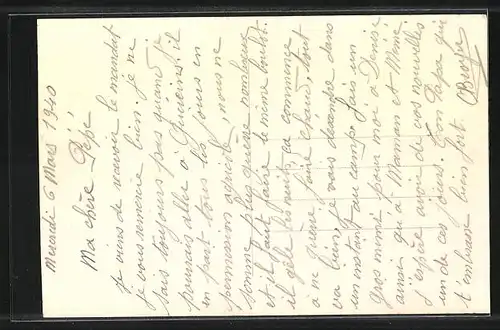 Mercredi 6 Mars 1940
Ma chère Pépé,
Je viens de recevoir le mandat
je vous remercie bien. je ne
sais toujours pas quand je
pourrais aller à Amiens, il
en part tous les jours en
permission agricole, nous ne
somme plus guère nombreux
et il faut faire le même boulot.
il gèle la nuit, ça commence
à ne guère faire chaud, tout
va bien, je vais descendre dans
un instant au camp. fais un
gros mimi pour moi à Denise
ainsi qu'à Maman et Mémé
J'espère avoir de vos nouvelles
un de ces jours. Ton Papa qui
t'embrasse bien fort.